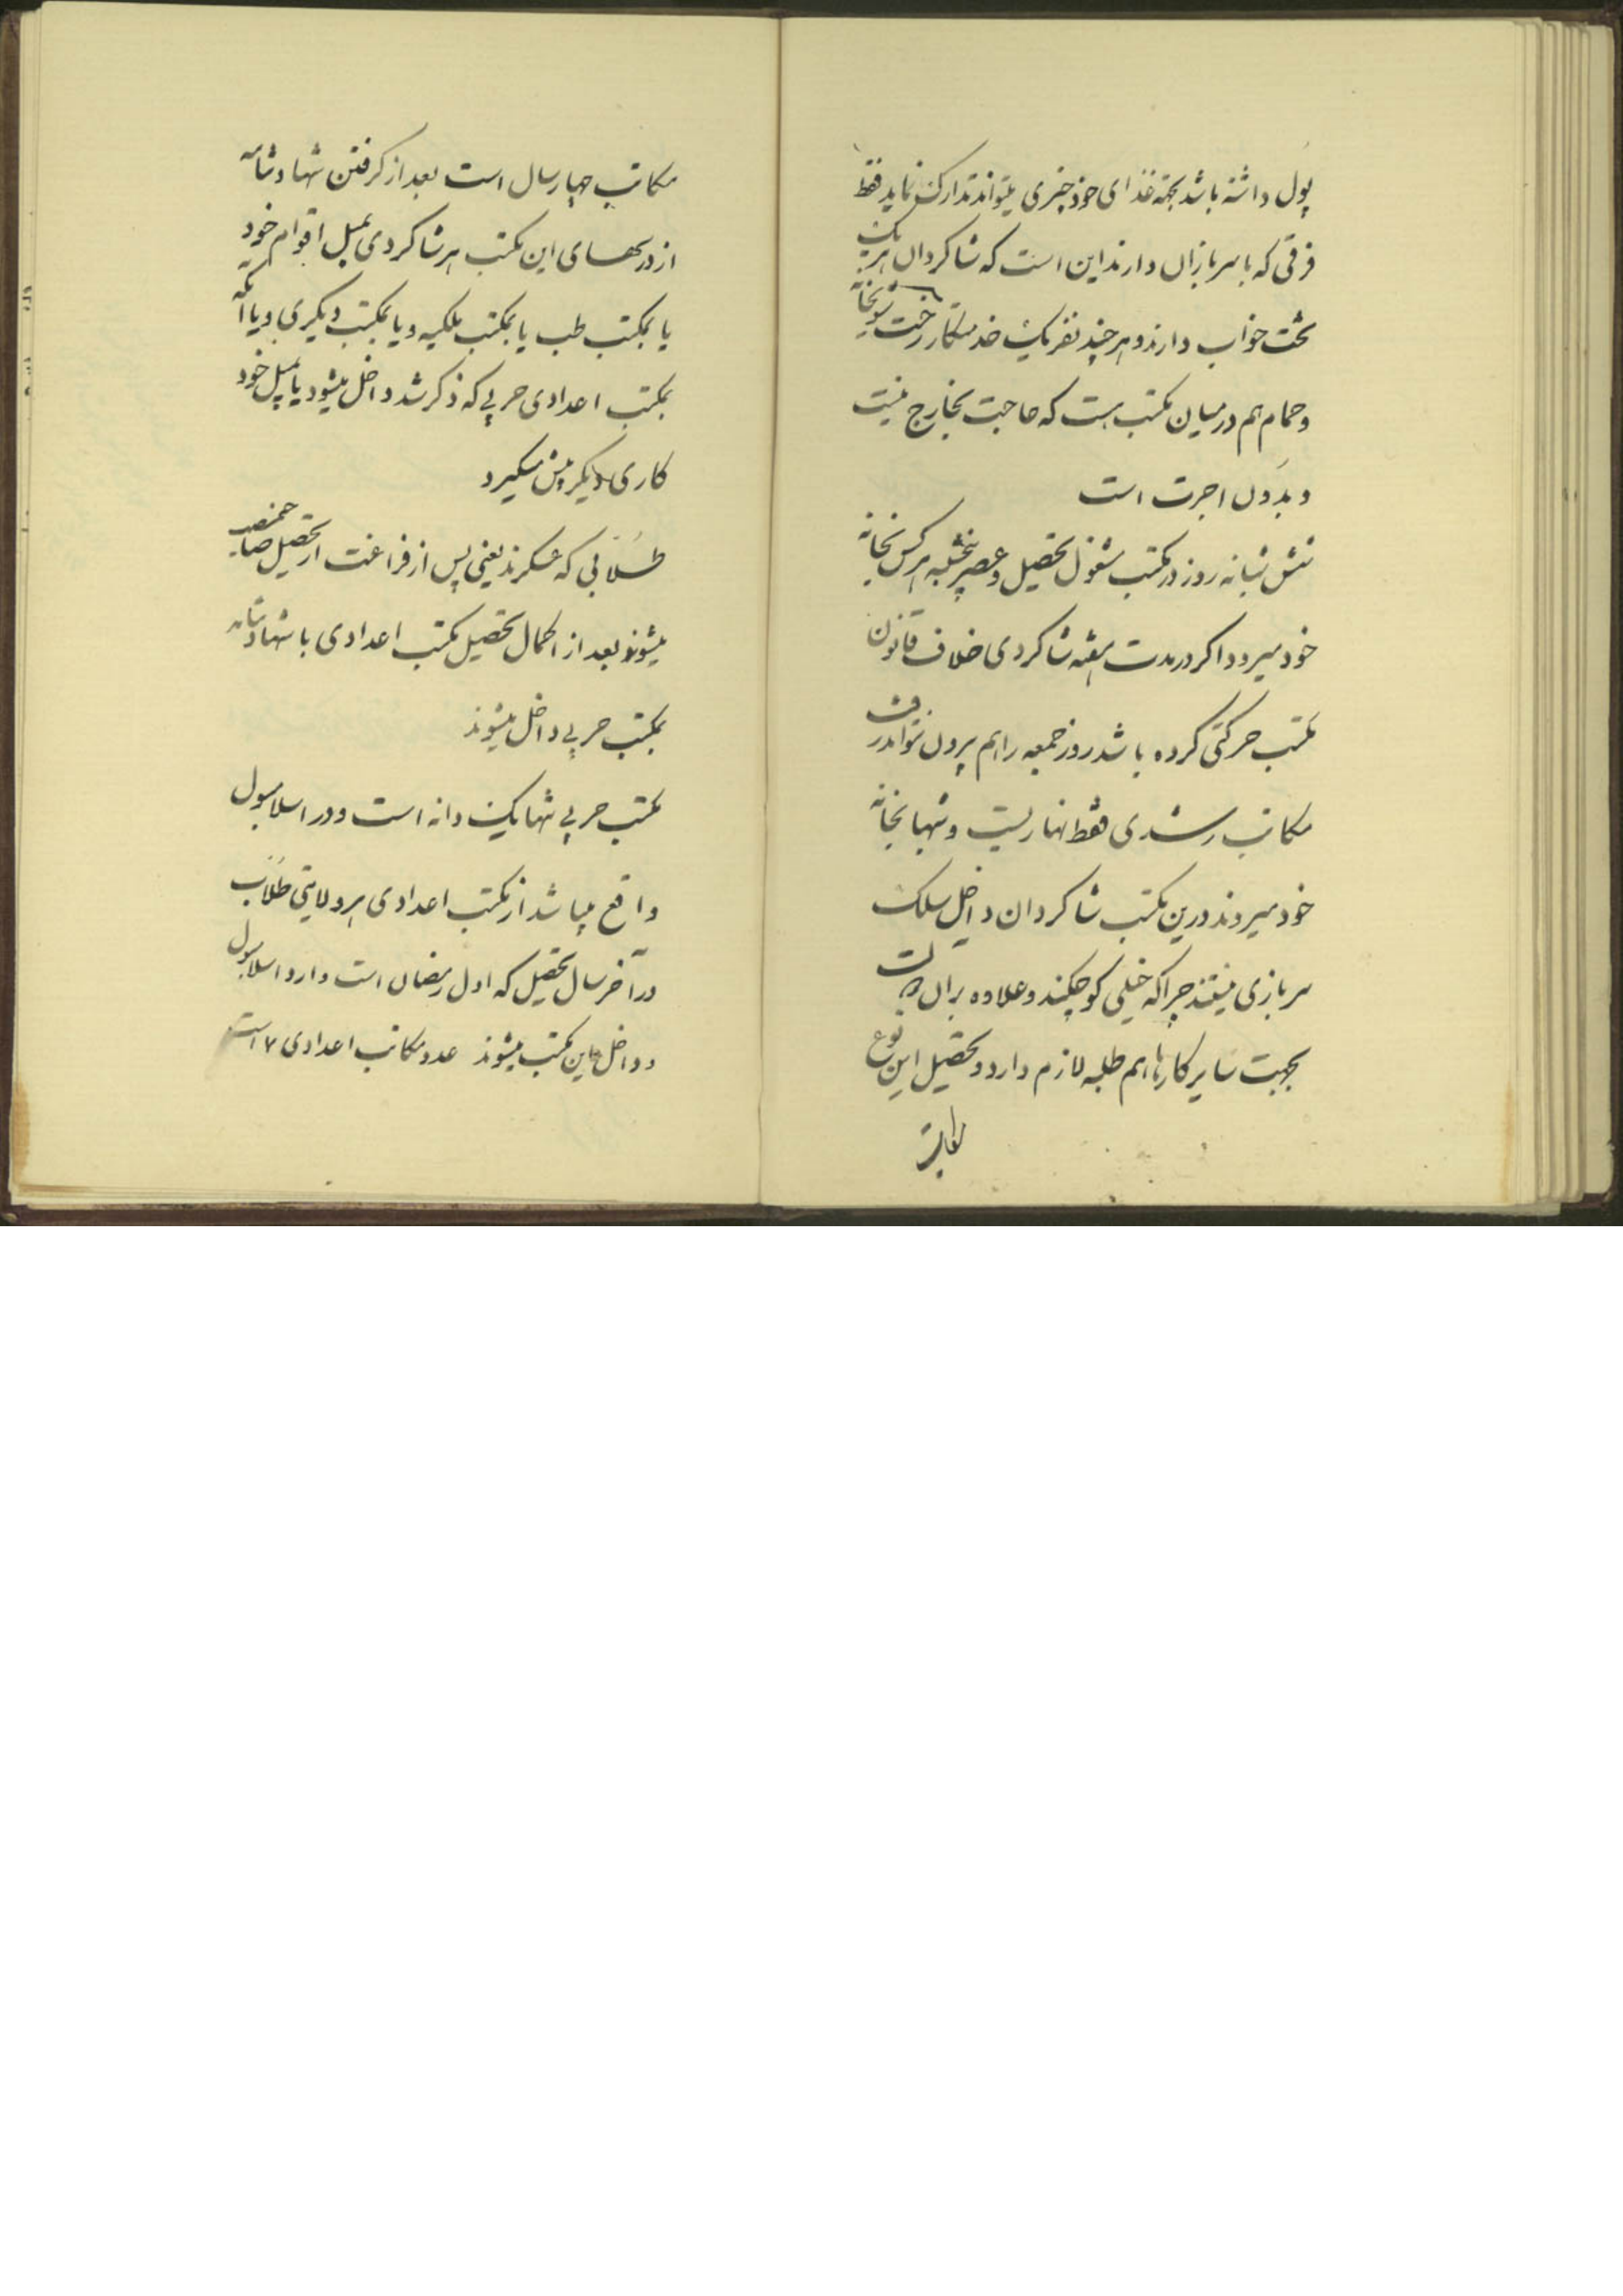 پول داشته باشد بجهته غذای خود چیزی میتواند تدارک نماید فقط
فرقی که با سربازان دارند این است که شاکردان هر یک
تخت خواب دارند و هر چند نفر یک خدمتکار رخت شویخانه
و حمام هم در میان مکتب هست که حاجت بخارج نیست
و بدون اجرت است
شش شبانه روز در مکتب مشغول تحصیل و عصر پنجشنبه هر کس بخانه
خود میرود و اکر در مدت هفته شاکردی خلاف قانون
مکتب حرکتی کرده باشد روز جمعه را هم بیرون نتواند رفت
مکاتب رشدی فقط نهاریست و شبها بخانه
خود میروند درین مکتب شاکردان داخل سلک
سربازی نیستند چرا که خیلی کوچکند و علاوه بر آن دولت
بجهت سایر کارها هم طلبه لازم دارد و تحصیل این نوع
مکاتب
مکاتب چهار سال است بعد از کرفتن شهادتنامه
از درسهای این مکتب هر شاکردی بمیل اقوام خود
یا بمکتب طب یا بمکتب ملکیه و یا بمکتب دیکری و یا آنکه
بمکتب اعدادی حربی که ذکر شد داخل میشود یا بمیل خود
کاری دیکر پیش میکیرد
طلابی که عسکرند یعنی پس از فراغت از تحصیل صاحبمنصب
میشوند بعد از اکمال تحصیل مکتب اعدادی با شهادتنامه
بمکتب حربی داخل میشوند
مکتب حربی تنها یک دانه است و در اسلامبول
واقع میباشد از مکتب اعدادی هر ولایتی طلاب
در آخر سال تحصیل که اول رمضان است وارد اسلامبول
و داخل این مکتب میشوند عدد مکاتب اعدادی ۷ است